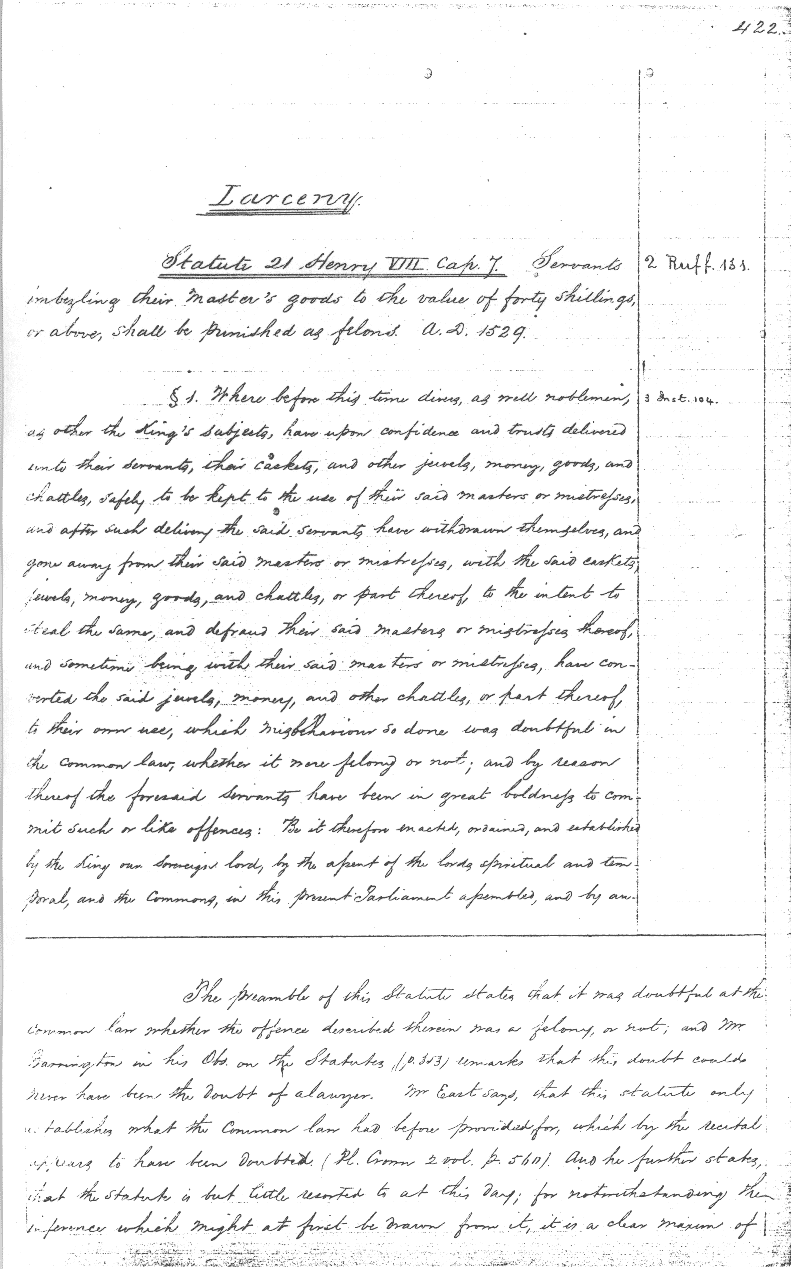 422.
Larceny.
Statute 21 Henry VIII Cap. 7. Servants
2 Ruff. 131.
imbezling their Master's goods to the value of forty shillings,
or above, shall be punished as felons. A.D. 1529.
§ 1. Where before this time divers, as well noblemen,
3 Inst. 104.
as other the King's Subjects, have upon confidence and trusts delivered
unto their servants, their caskets, and other jewels, money, goods, and
chattles, safely to be kept to the use of their said masters or mistresses,
and after such delivery the said servants have withdrawn themselves, and
gone away from their said masters or mistresses, with the said caskets,
jewels, money, goods, and chattles, or part thereof, to the intent to
steal the same, and defraud their said masters or mistresses thereof,
and sometime being with their said masters or mistresses, have con-
verted the said jewels, money, and other chattles, or part thereof,
to their own use, which misbehaviour so done was doubtful in
the common law, whether it were felony or not; and by reason
thereof the foresaid servants have been in great boldness to com-
mit such or like offences: Be it therefore enacted, ordained, and established
by the King our Sovereign lord, by the assent of the lords spiritual and tem-
poral, and the Commons, in this present Parliament assembled, and by au-
The preamble of this Statute states that it was doubtful at the
Common law whether the offence described therein was a felony, or not; and Mr
Barrington in his Obs. on the Statutes (p. 353) remarks that this doubt could
never have been the doubt of a lawyer. Mr East says, that this statute only
establishes what the Common law had before provided for, which by the recital
appears to have been doubted. (Pl. Crown 2 vol. p. 560). And he further states,
that the Statute is but little resorted to at this day; for notwithstanding the
inference which might at first be drawn from it, it is a clear maxim of